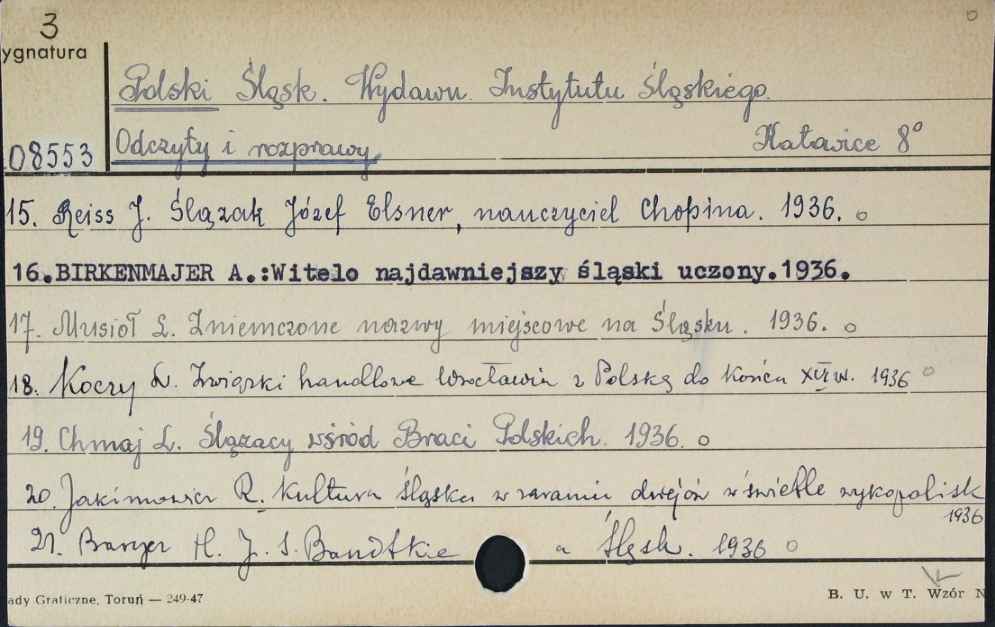 3
ygnatura
Polski Śląsk. Wydawn. Instytutu Śląskiego.
08553 Odczyty i rozprawy Katowice 8°
15. Reiss J. Ślązak Józef Elsner, nauczyciel Chopina. 1936. o
16.BIRKENMAJER A.:Witelo najdawniejszy śląski uczony.1936.
17. Musioł L. Zniemczone nazwy miejscowe na Śląsku. 1936. o
18. Koczy L. Związki handlowe Wrocławia z Polską do końca XVI w. 1936 o
19. Chmaj L. Ślązacy wśród Braci Polskich. 1936. o
20. Jakimowicz R. Kultura Śląska w zaraniu dziejów w świetle wykopalisk
1936
21. Barycz H. J. S. Bandtkie a Śląsk. 1936 o
ady Graficzne, Toruń — 249-47 B. U. w T. Wzór N